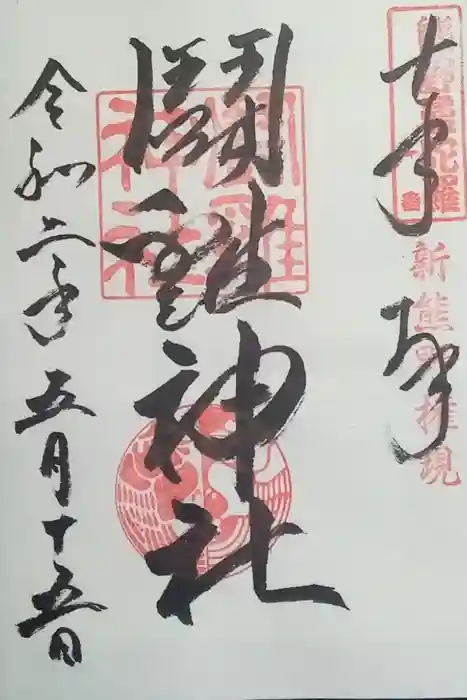 奉拝
熊野曼陀羅
新熊野権現
闘雞神社
闘雞神社
令和二年五月十五日